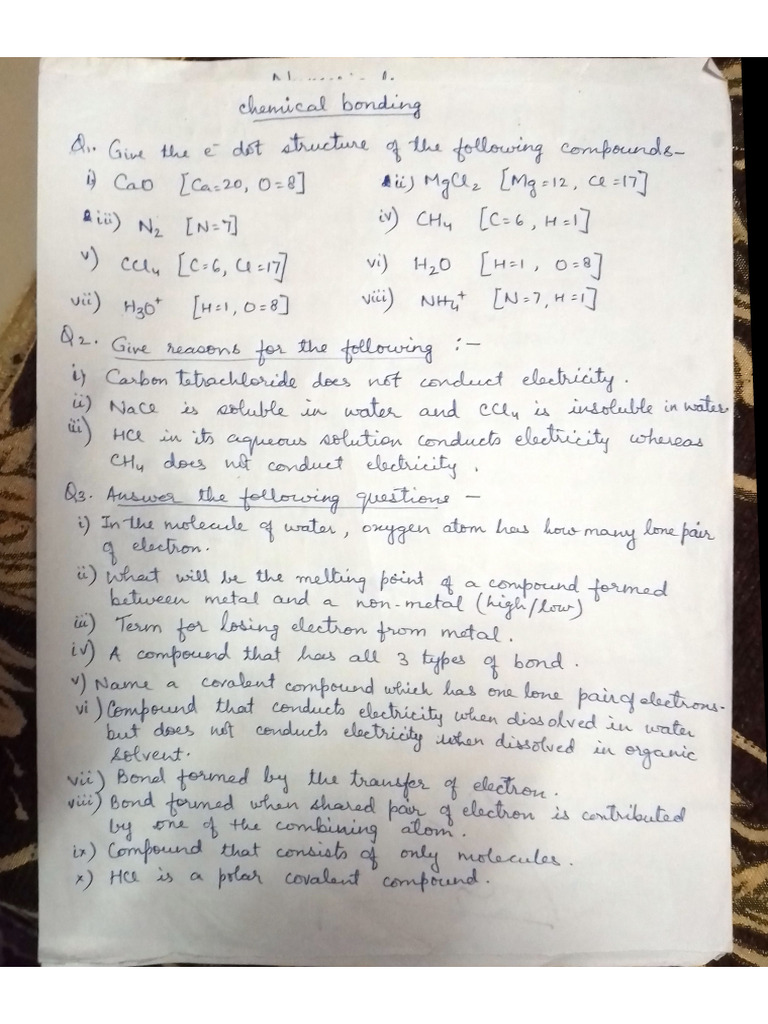 chemical bonding
Q1. Give the e⁻ dot structure of the following compounds-
i) CaO [Ca=20, O=8] ii) MgCl₂ [Mg=12, Cl=17]
iii) N₂ [N=7] iv) CH₄ [C=6, H=1]
v) CCl₄ [C=6, Cl=17] vi) H₂O [H=1, O=8]
vii) H₃O⁺ [H=1, O=8] viii) NH₄⁺ [N=7, H=1]
Q2. Give reasons for the following :-
i) Carbon tetrachloride does not conduct electricity.
ii) NaCl is soluble in water and CCl₄ is insoluble in water.
iii) HCl in its aqueous solution conducts electricity whereas
CH₄ does not conduct electricity.
Q3. Answer the following questions -
i) In the molecule of water, oxygen atom has how many lone pair
of electron.
ii) What will be the melting point of a compound formed
between metal and a non-metal (high/low)
iii) Term for losing electron from metal.
iv) A compound that has all 3 types of bond.
v) Name a covalent compound which has one lone pair of electrons.
vi) Compound that conducts electricity when dissolved in water
but does not conducts electricity when dissolved in organic
solvent.
vii) Bond formed by the transfer of electron.
viii) Bond formed when shared pair of electron is contributed
by one of the combining atom.
ix) Compound that consists of only molecules.
x) HCl is a polar covalent compound.